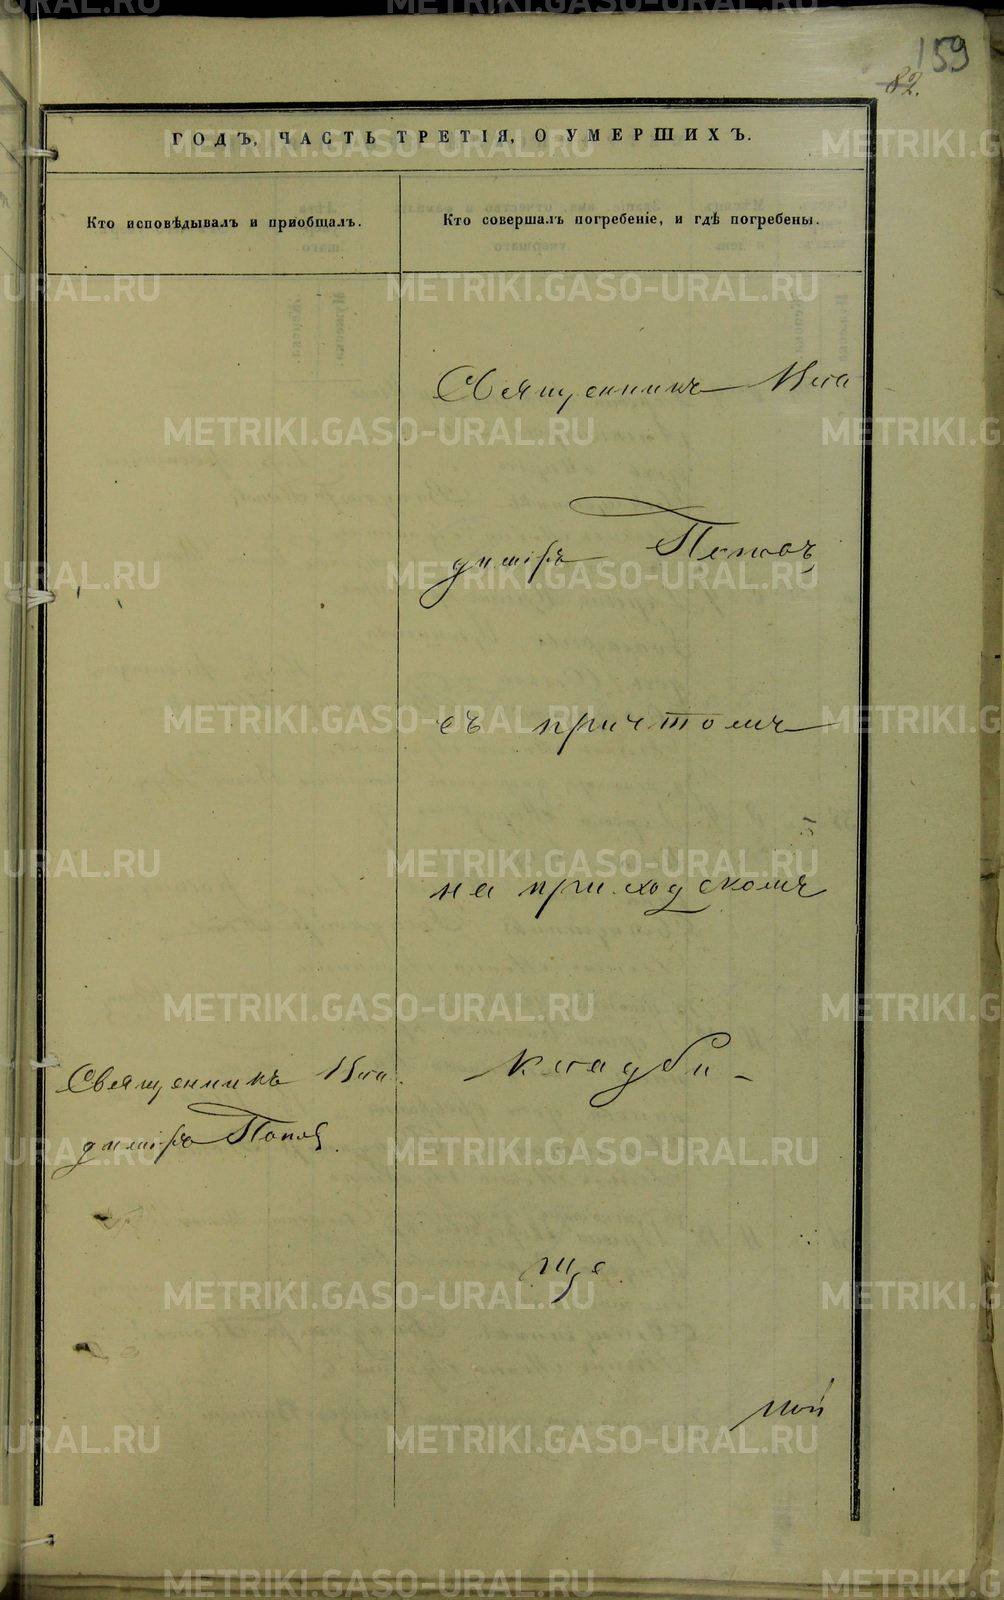 159
82.
ГОДЪ, ЧАСТЬ ТРЕТІЯ, О УМЕРШИХЪ.
Кто исповѣдывалъ и пріобщалъ.
Кто совершалъ погребеніе, и гдѣ погребены.
Священникъ Вла
димiръ Поповъ
съ причтомъ
на приходскомъ
кладби-
ще
Священникъ Вла
димiръ Поповъ.
METRIKI.GASO-URAL.RU